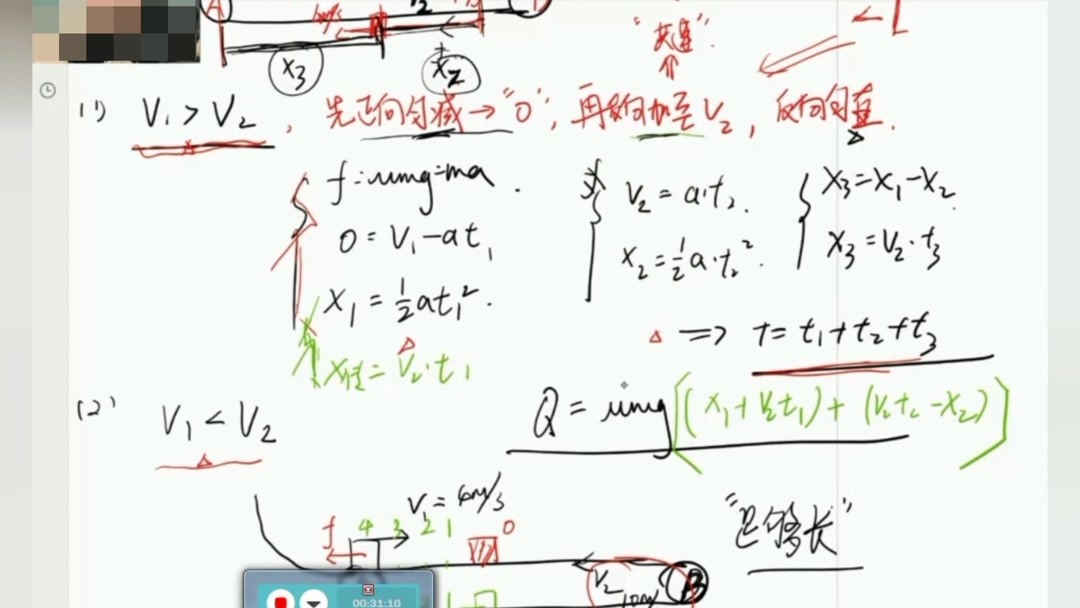 A
x₃
x₂
"共速".
< L
(1) V₁ > V₂, 先正向匀减→"0"; 再反向加至V₂, 反向匀直.
f=μmg=ma.
0 = V₁-at₁
x₁ = ½at₁².
x传= V₂·t₁
V₂ = a·t₂.
x₂=½a·t₂².
x₃=x₁-x₂.
x₃=V₂·t₃
=> t=t₁+t₂+t₃
Q = μmg[(x₁+V₂t₁)+(V₂t₂-x₂)]
(2) V₁ < V₂
"足够长"
V₁=6m/s
f 4 3 2 1 0
V₂ 10m/s B
1
00:31:10